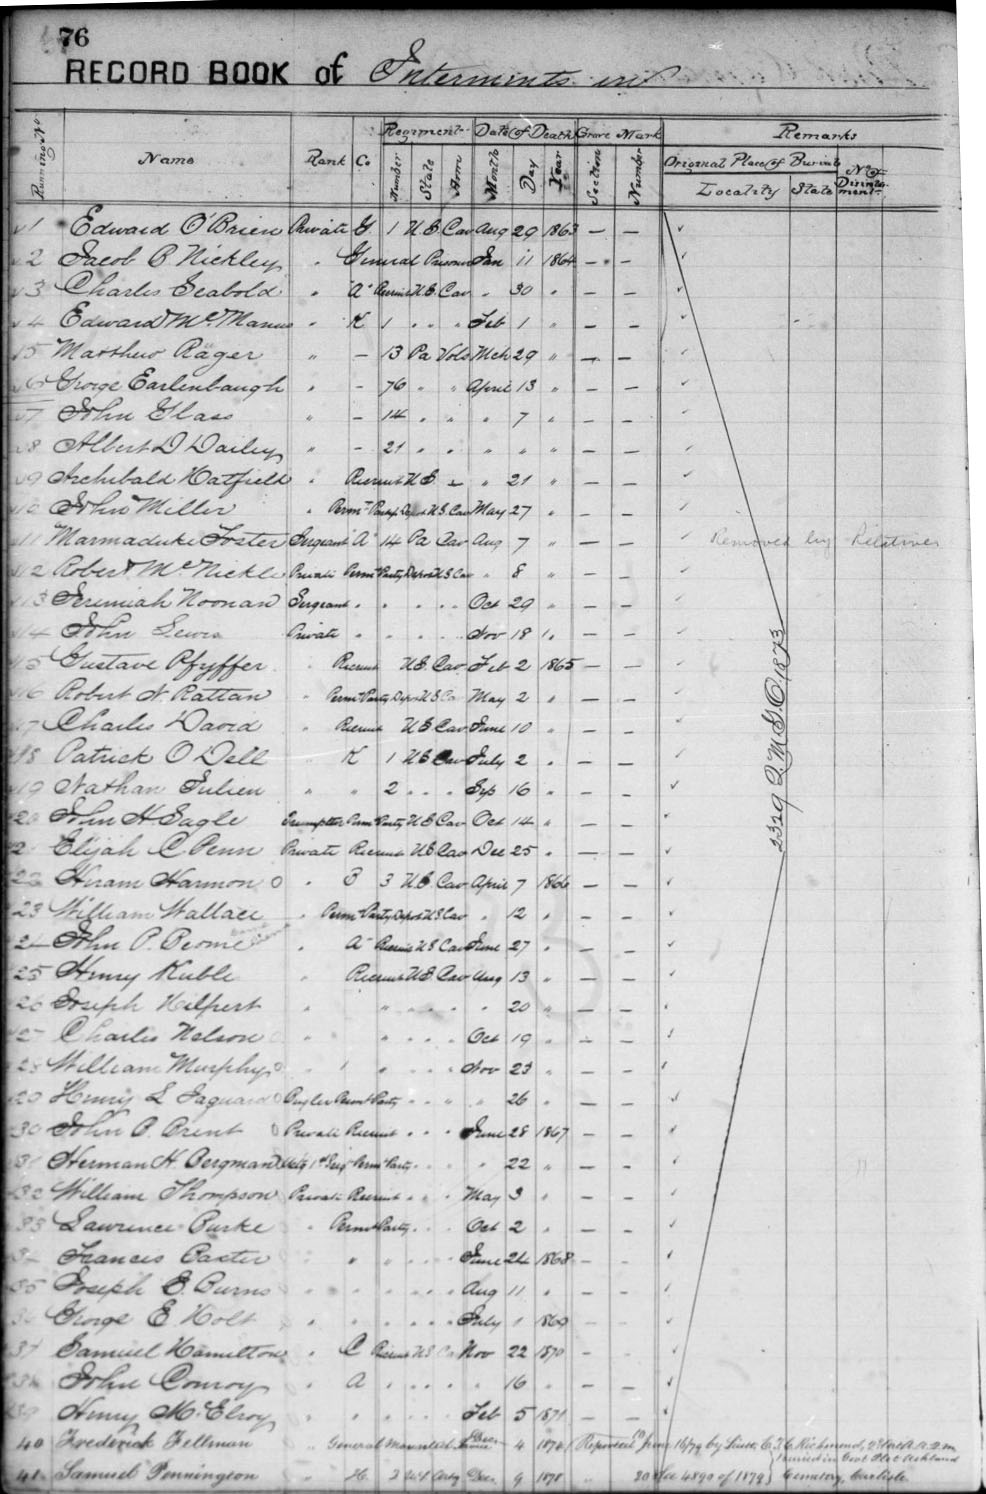 76
RECORD BOOK of Interments in
Running No Name Rank Co. Regiment Date of Death Grave Mark Remarks
Number State Arm Month Day Year Section Number Original Place of Burial No of Disinterment
Locality State
1 Edward O'Brien Private G. 1 U.S. Cav Aug 29 1863 — —
2 Jacob B. Nickley " General Prisoner Jan 11 1864 — —
3 Charles Seabold " "A" Recruit U.S. Cav " 30 " — —
4 Edward McManus " K 1 " " " Feb 1 " — —
5 Matthew Rager " — 13 Pa Vols Mch 29 " — —
6 George Earlenbaugh " — 76 " " April 13 " — —
7 John Glass " — 14 " " " 7 " — —
8 Albert D Dailey " — 21 " " " " " — —
9 Archibald Hatfield " Recruit U.S. — " 21 " — —
10 John Miller " Permt Party Depot U.S. Cav May 27 " — —
11 Marmaduke Foster Sergeant "A" 14 Pa Cav Aug 7 " — — Removed by Relatives
12 Robert McNickle Private Permt Party Depot U S Cav " 8 " — —
13 Jeremiah Noonan Sergeant " " " " " Oct 29 " — —
14 John Lewis Private " " " " " Nov 18 " — —
15 Gustave Pfyffer " Recruit U.S. Cav Feb 2 1865 — —
16 Robert N. Rattan " Permt Party Depot U S Cav May 2 " — —
17 Charles David " Recruit U.S. Cav June 10 " — —
18 Patrick O Dell " K 1 U S Cav July 2 " — —
19 Nathan Julien " " 2 " " " Sep 16 " — —
20 John H Eagle Trumpeter Perm Party U S Cav Oct 14 " — —
21 Elijah C Penn Private Recruit U S Cav Dec 25 " — —
22 Hiram Harmon O " B 3 U.S. Cav April 7 1866 — —
23 William Wallace " Permt Party Depot U S Cav " 12 " — —
24 John P. " "A" Recruit U S Cav June 27 " — —
25 Henry Kuble " Recruit U S Cav Aug 13 " — —
26 Joseph Hilpert " " " " " " 20 " — —
27 Charles Nelson " " " " " Oct 19 " — —
28 William Murphy " " " " " Nov 23 " — —
29 Henry L Jaquard Bugler Permt Party " " " " 26 " — —
30 John B. Brent Private Recruit " " " June 28 1867 — —
31 Herman H. Bergman 1st Sergt Permt Party " " " " 22 " — —
32 William Thompson Private Recruit " " " May 3 " — —
33 Lawrence Burke " Permt Party " " " Oct 2 " — —
34 Frances Baxter " " " " " " June 24 1868 — —
35 Joseph E. Burns " " " " " " Aug 11 " — —
36 George E Holt " " " " " " July 1 1869 — —
37 Samuel Hamilton " C Recruit U S Cav Nov 22 1870 — —
38 John Conroy " A " " " " 16 " — —
39 Henry McElroy " " " " " Feb 5 1871 — —
2329 Q.M.G.O. 1873
40 Frederick Fellman " General Dec 4 1874 Reported June 16/79 by Lieut. C. Richmond,
buried in Govt Plot Ashland
41 Samuel Pennington " H. 3 U S Arty Dec 9 1878 " 20 See 4890 of 1879 } Cemetery, Carlisle